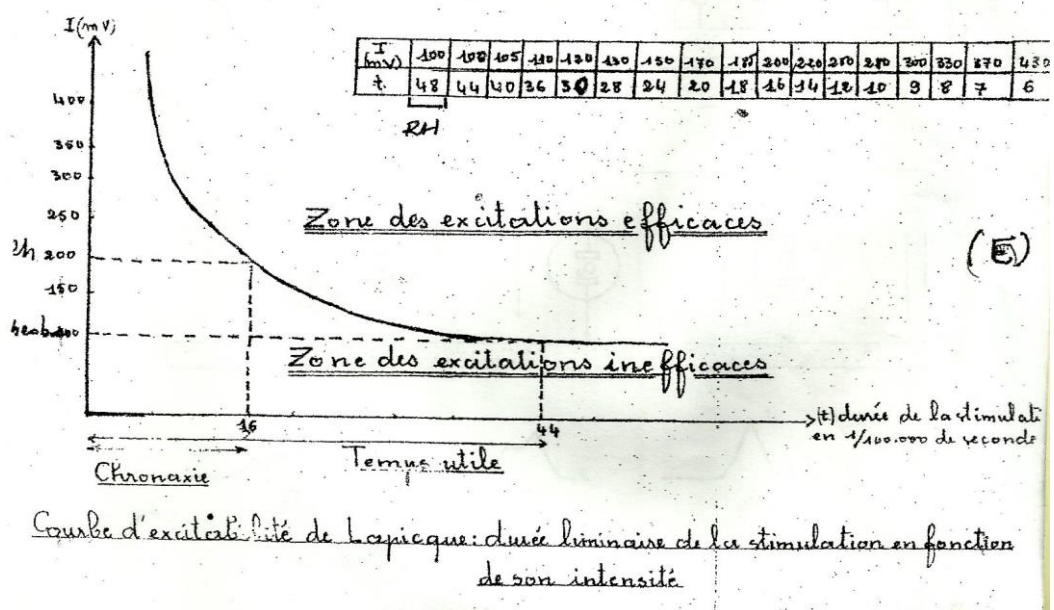 I(mV)
I (mV) 100 100 105 110 120 130 150 170 185 200 220 250 280 300 330 370 430
t. 48 44 40 36 30 28 24 20 18 16 14 12 10 9 8 7 6
RH
400
350
300
Zone des excitations efficaces
250
(E)
200
150
Zone des excitations inefficaces
16
44
(t) durée de la stimulati
en 1/100.000 de seconde
Chronaxie
Temps utile
Courbe d'excitabilité de Lapicque: durée liminaire de la stimulation en fonction
de son intensité